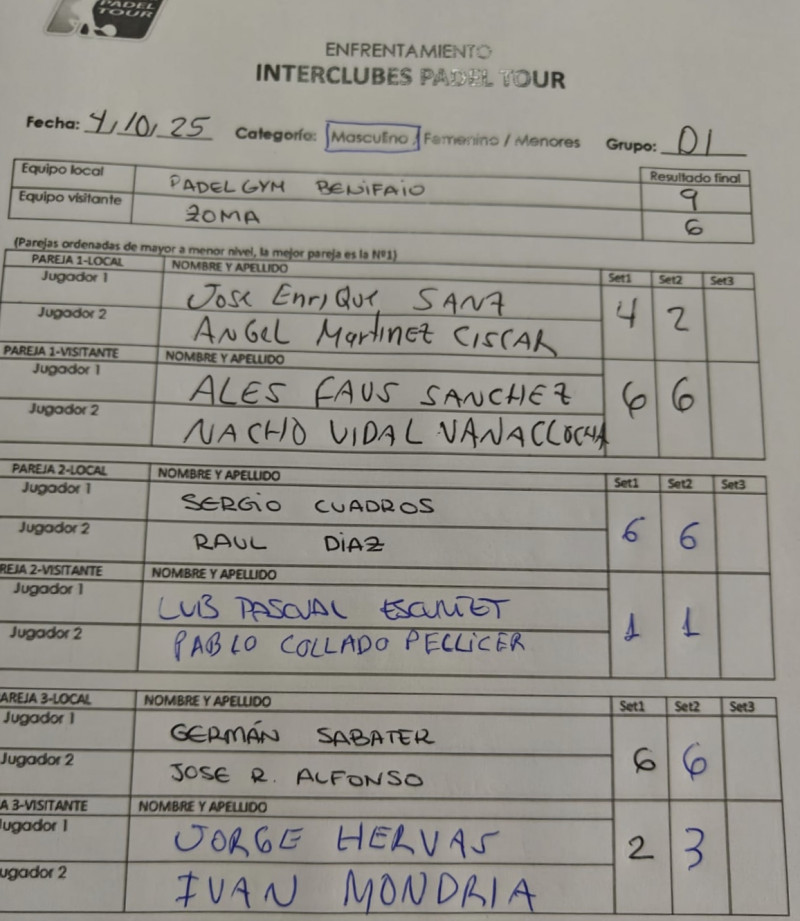 PADEL
TOUR
ENFRENTAMIENTO
INTERCLUBES PADEL TOUR
Fecha: 4/10/25 Categoría: Masculino / Femenino / Menores Grupo: D1
Equipo local PADEL GYM BENIFAIO Resultado final 9
Equipo visitante ZOMA 6
(Parejas ordenadas de mayor a menor nivel, la mejor pareja es la Nº1)
PAREJA 1-LOCAL NOMBRE Y APELLIDO Set1 Set2 Set3
Jugador 1 Jose Enrique SANZ 4 2
Jugador 2 ANGEL Martinez CISCAR
PAREJA 1-VISITANTE NOMBRE Y APELLIDO
Jugador 1 ALES FAUS SANCHEZ 6 6
Jugador 2 NACHO VIDAL VANACLOCHA
PAREJA 2-LOCAL NOMBRE Y APELLIDO Set1 Set2 Set3
Jugador 1 SERGIO CUADROS 6 6
Jugador 2 RAUL DIAZ
REJA 2-VISITANTE NOMBRE Y APELLIDO
Jugador 1 LUIS PASCUAL 1 1
Jugador 2 PABLO COLLADO PELLICER
AREJA 3-LOCAL NOMBRE Y APELLIDO Set1 Set2 Set3
Jugador 1 GERMÁN SABATER 6 6
Jugador 2 JOSE R. ALFONSO
A 3-VISITANTE NOMBRE Y APELLIDO
ugador 1 JORGE HERVAS 2 3
ugador 2 IVAN MONDRIA